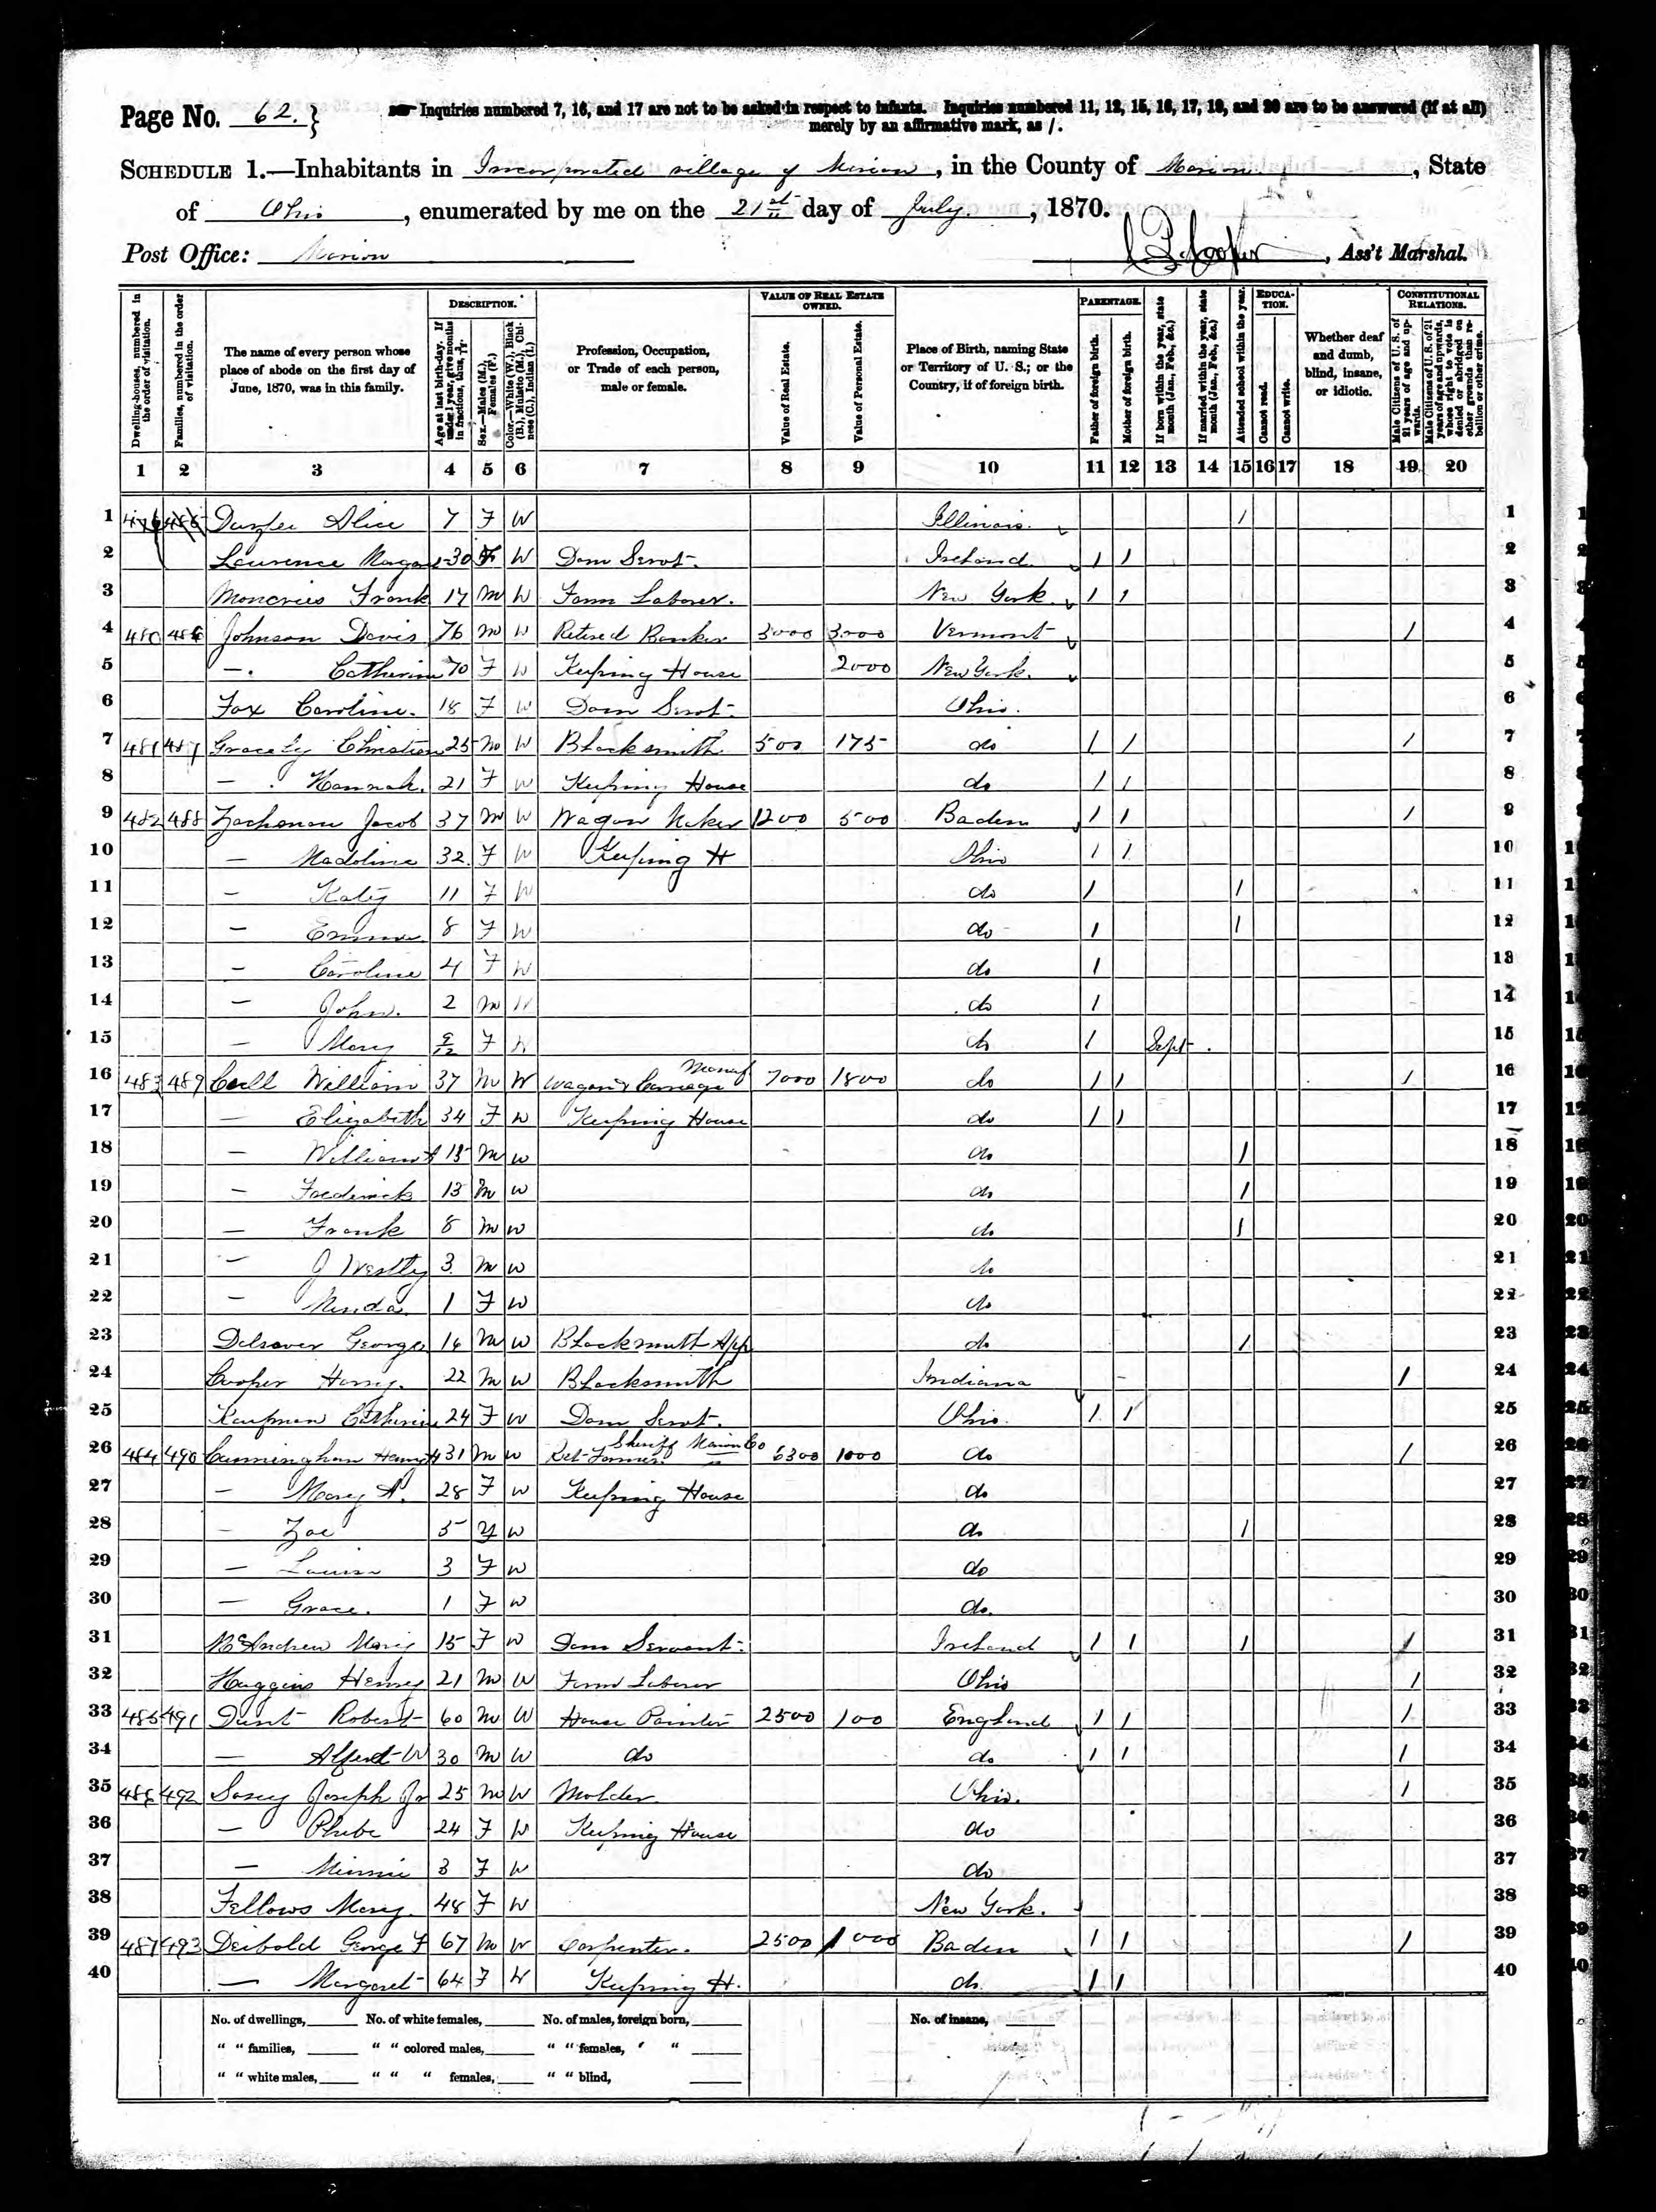 Page No. 62.
Inquiries numbered 7, 16, and 17 are not to be asked in respect to infants. Inquiries numbered 11, 12, 15, 16, 17, 19, and 20 are to be answered (if at all)
merely by an affirmative mark, as /.
SCHEDULE 1.—Inhabitants in Incorporated village of Marion, in the County of Marion, State
of Ohio, enumerated by me on the 21st day of July, 1870.
Post Office: Marion Cooper, Ass't Marshal.
DESCRIPTION. VALUE OF REAL ESTATE OWNED. PARENTAGE. EDUCATION. CONSTITUTIONAL RELATIONS.
Dwelling-houses, numbered in the order of visitation.
Families, numbered in the order of visitation.
The name of every person whose place of abode on the first day of June, 1870, was in this family.
Age at last birth-day. If under 1 year, give months in fractions, thus,
Sex.—Males (M.), Females (F.)
Color.—White (W.), Black (B.), Mulatto (M.), Chinese (C.), Indian (I.)
Profession, Occupation, or Trade of each person, male or female.
Value of Real Estate.
Value of Personal Estate.
Place of Birth, naming State or Territory of U. S.; or the Country, if of foreign birth.
Father of foreign birth.
Mother of foreign birth.
If born within the year, state month (Jan., Feb., &c.)
If married within the year, state month (Jan., Feb., &c.)
Attended school within the year.
Cannot read.
Cannot write.
Whether deaf and dumb, blind, insane, or idiotic.
Male Citizens of U. S. of 21 years of age and upwards.
Male Citizens of U. S. of 21 years of age and upwards, whose right to vote is denied or abridged on other grounds than rebellion or other crime.
1 2 3 4 5 6 7 8 9 10 11 12 13 14 15 16 17 18 19 20
1 Alice 7 F W Illinois / 1
2 Laurence 30 F W Dom Servt. Ireland / / 2
3 Moncries Frank 17 M W Farm Laborer. New York / / 3
4 480 486 Johnson Davis 76 M W Retired Banker 3000 3000 Vermont / 4
5 — Catherine 70 F W Keeping House 2000 New York. 5
6 Fox Caroline. 18 F W Dom Servt. Ohio. 6
7 481 487 Gracely Christian 25 M W Blacksmith 500 175 do / / / 7
8 — Hannah. 21 F W Keeping House do / / 8
9 482 488 Zachman Jacob 37 M W Wagon Maker 1200 500 Baden / / / 9
10 — Madoline 32 F W Keeping H Ohio / / 10
11 — Katy 11 F W do / / 11
12 — Emma 8 F W do / / 12
13 — Caroline 4 F W do / 13
14 — John. 2 M W do / 14
15 — Mary 9/12 F W do / Sept. 15
16 483 489 Cull William 37 M W Wagon & Carriage Manuf 7000 1800 do / / / 16
17 — Elizabeth 34 F W Keeping House do / / 17
18 — William 15 M W do / 18
19 — Frederick 13 M W do / 19
20 — Frank 8 M W do / 20
21 — J Westly 3 M W do 21
22 — 1 F W do 22
23 George 16 M W Blacksmith App do / 23
24 Cooper Henry. 22 M W Blacksmith Indiana / 24
25 Kaufman Catherine 24 F W Dom Servt. Ohio. / / 25
26 484 490 Cunningham 31 M W Ret Farmer. Sheriff Marion Co 6300 1000 do / 26
27 — Mary A. 28 F W Keeping House do 27
28 — Zoe 5 F W do / 28
29 — Louisa 3 F W do 29
30 — Grace. 1 F W do. 30
31 McAndrew Mary 15 F W Dom Servant. Ireland / / / / 31
32 Huggins Henry 21 M W Farm Laborer Ohio / 32
33 485 491 Dunt Robert 60 M W House Painter 2500 100 England / / / 33
34 — Alfred W 30 M W do do / / / 34
35 486 492 Sosey Joseph Jr 25 M W Molder Ohio. / 35
36 — Phebe 24 F W Keeping House do 36
37 — Minnie 3 F W do 37
38 Fellows Mary. 48 F W New York. 38
39 487 493 Deibold George F 67 M W Carpenter. 2500 1000 Baden / / / 39
40 — Margaret 64 F W Keeping H. do. / / 40
No. of dwellings, No. of white females, No. of males, foreign born, No. of insane,
" " families, " " colored males, " " females, " "
" " white males, " " " females, " " blind,